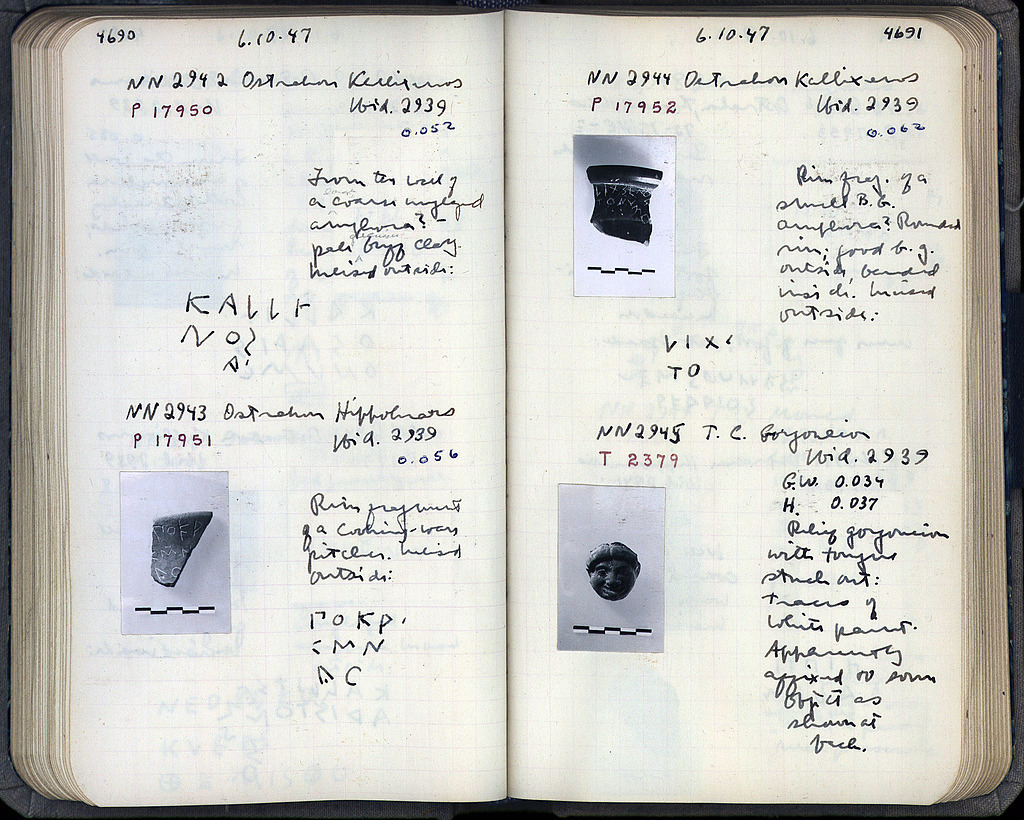 4690 6.10.47
NN 2942 Ostrakon Kallixenos
P 17950 Ibid. 2939
0.052
From the wall of
a coarse unglazed
amphora? -
pale buff clay.
Incised outside:
ΚΑΛΛΙ
ΝΟΣ
Α
NN 2943 Ostrakon Hippokrates
P 17951 Ibid. 2939
0.056
Rim fragment
of a cooking-ware
pitcher. Incised
outside:
ΠΟΚΡ
ΕΜΝ
ΔC
6.10.47 4691
NN 2944 Ostrakon Kallixenos
P 17952 Ibid. 2939
0.062
Rim frag. of a
small B.G.
amphora? Rounded
rim; good b.g.
outside, banded
inside. Incised
outside:
ΙΧ
ΤΟ
NN 2945 T.C. Gorgoneion
T 2379 Ibid. 2939
G.W. 0.034
H. 0.037
Relief gorgoneion
with tongue
stuck out:
traces of
white paint.
Apparently
affixed to some
object as
shown at
back.